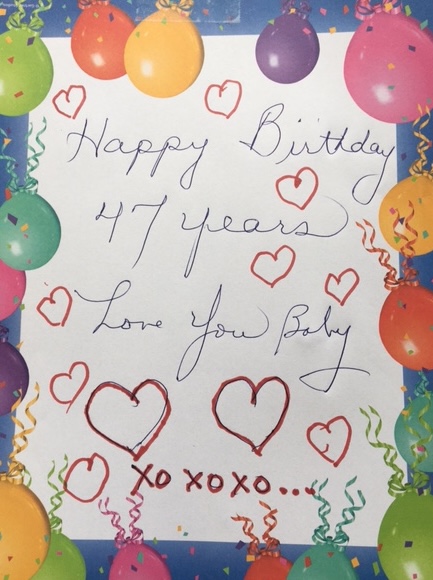 Happy Birthday
47 years
Love You Baby
XO XO XO...